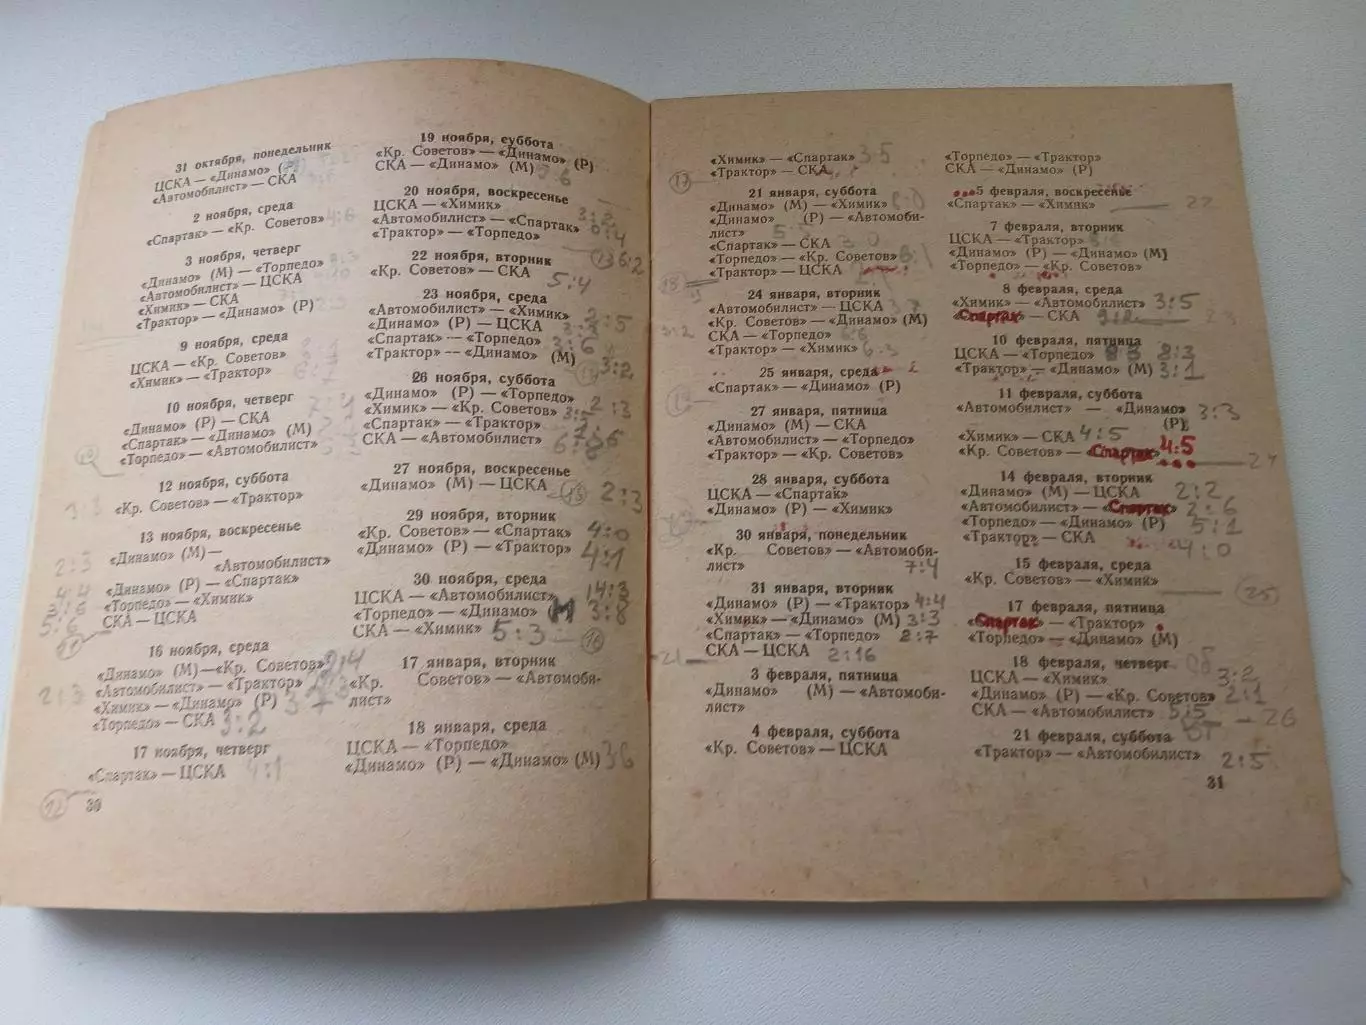 31 октября, понедельник
ЦСКА — «Динамо»
«Автомобилист» — СКА
2 ноября, среда
«Спартак» — «Кр. Советов» 4:6
3 ноября, четверг
«Динамо» (М) — «Торпедо»
«Автомобилист» — ЦСКА
«Химик» — СКА
«Трактор» — «Динамо» (Р)
9 ноября, среда
ЦСКА — «Кр. Советов»
«Химик» — «Трактор»
10 ноября, четверг
«Динамо» (Р) — СКА
«Спартак» — «Динамо» (М)
«Торпедо» — «Автомобилист»
12 ноября, суббота
«Кр. Советов» — «Трактор»
3:3
13 ноября, воскресенье
«Динамо» (М) —
«Автомобилист»
2:3
«Динамо» (Р) — «Спартак»
4:4
«Торпедо» — «Химик»
СКА — ЦСКА
16 ноября, среда
«Динамо» (М) — «Кр. Советов»
«Автомобилист» — «Трактор»
2:3
«Химик» — «Динамо» (Р)
«Торпедо» — СКА 3:2
17 ноября, четверг
«Спартак» — ЦСКА 4:1
12
30
19 ноября, суббота
«Кр. Советов» — «Динамо» (Р)
СКА — «Динамо» (М)
20 ноября, воскресенье
ЦСКА — «Химик» 3:2
«Автомобилист» — «Спартак»
«Трактор» — «Торпедо»
13 6:2
22 ноября, вторник
«Кр. Советов» — СКА
5:4
23 ноября, среда
«Автомобилист» — «Химик»
«Динамо» (Р) — ЦСКА
«Спартак» — «Торпедо»
«Трактор» — «Динамо» (М)
3:2
26 ноября, суббота
«Динамо» (Р) — «Торпедо»
«Химик» — «Кр. Советов»
«Спартак» — «Трактор»
СКА — «Автомобилист»
27 ноября, воскресенье
«Динамо» (М) — ЦСКА 15 2:3
29 ноября, вторник
«Кр. Советов» — «Спартак» 4:0
«Динамо» (Р) — «Трактор» 4:1
30 ноября, среда
ЦСКА — «Автомобилист» 14:3
«Торпедо» — «Динамо» (М 3:8
СКА — «Химик» 5:3 16
17 января, вторник
«Кр. Советов» — «Автомоби-
лист»
18 января, среда
ЦСКА — «Торпедо»
«Динамо» (Р) — «Динамо» (М) 3:6
«Химик» — «Спартак» 3:5
«Трактор» — СКА
17
21 января, суббота
«Динамо» (М) — «Химик»
«Динамо» (Р) — «Автомоби-
лист»
«Спартак» — СКА 3:0
«Торпедо» — «Кр. Советов» 6:1
«Трактор» — ЦСКА
18
24 января, вторник
«Автомобилист» — ЦСКА 3:7
«Кр. Советов» — «Динамо» (М)
3:2
СКА — «Торпедо» 6:6
«Трактор» — «Химик» 6:3
25 января, среда
«Спартак» — «Динамо» (Р)
27 января, пятница
«Динамо» (М) — СКА
«Автомобилист» — «Торпедо»
«Трактор» — «Кр. Советов»
28 января, суббота
ЦСКА — «Спартак»
«Динамо» (Р) — «Химик»
30 января, понедельник
«Кр. Советов» — «Автомоби-
лист» 7:4
31 января, вторник
«Динамо» (Р) — «Трактор» 4:4
«Химик» — «Динамо» (М) 3:3
«Спартак» — «Торпедо» 2:7
СКА — ЦСКА 2:16
21
3 февраля, пятница
«Динамо» (М) — «Автомоби-
лист»
4 февраля, суббота
«Кр. Советов» — ЦСКА
«Торпедо» — «Трактор»
СКА — «Динамо» (Р)
5 февраля, воскресенье
«Спартак» — «Химик» 22
7 февраля, вторник
ЦСКА — «Трактор»
«Динамо» (Р) — «Динамо» (М)
«Торпедо» — «Кр. Советов»
8 февраля, среда
«Химик» — «Автомобилист» 3:5
«Спартак» — СКА 9:2 23
10 февраля, пятница
ЦСКА — «Торпедо» 8:3 8:3
«Трактор» — «Динамо» (М) 3:1
11 февраля, суббота
«Автомобилист» — «Динамо»
(Р) 3:3
«Химик» — СКА 4:5
«Кр. Советов» — «Спартак» 4:5
24
14 февраля, вторник
«Динамо» (М) — ЦСКА 2:2
«Автомобилист» — «Спартак» 2:6
«Торпедо» — «Динамо» (Р) 5:1
«Трактор» — СКА 4:0
15 февраля, среда
«Кр. Советов» — «Химик»
25
17 февраля, пятница
«Спартак» — «Трактор»
«Торпедо» — «Динамо» (М)
18 февраля, четверг сб
ЦСКА — «Химик» 3:2
«Динамо» (Р) — «Кр. Советов» 2:1
СКА — «Автомобилист» 5:5
26
21 февраля, суббота ВТ
«Трактор» — «Автомобилист» 2:5
31